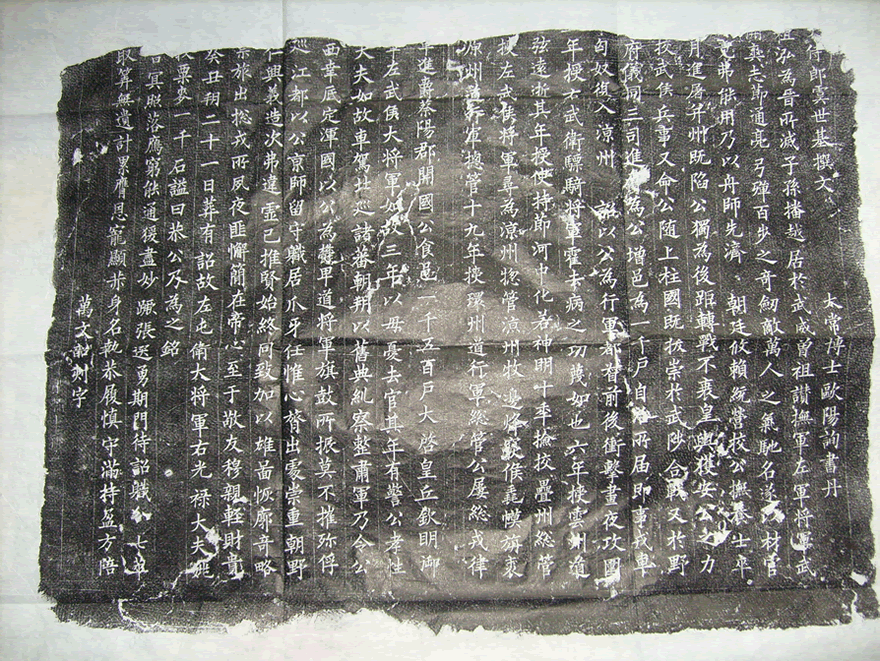 行郎虞世基撰文 太常博士歐陽詢書丹
泓為晉所滅子孫播越居於武威曾祖讚撫軍左軍將軍武
志節通亮弓彈百步之奇劒敵萬人之氣馳名遂以材官
弟偕用乃以舟師先濟朝廷攸賴統營校公撫養士卒
月進屠并州既陷公獨為後距轉戰不衰皇輿獲安公之力
授武侯兵事又命公随上柱國既拔崇於武陟合戰又於野
府儀同三司進為公增邑為一千戶自所屆即事戎車
匈奴復入涼州 詔以公為行軍都督前後衝擊晝夜攻圍
年授右武衛驃騎將軍霍去病之功蔑如也六年授雲州道
弦遠逝其年授使持節河中化若神明十率撫授疊州總管
授左武侯將軍尋為涼州惣管涼州牧邊將駭旃裘
源州道行軍總管十九年授環州道行軍總管公屢總戎律
年進爵蔡陽郡開國公食邑一千五百戶大啓皇丘欽明御
年左武侯大將軍如故三年以母憂去官其年有警公孝性
大夫如故車駕北巡諸蕃朝朔以舊典糺察整肅軍乃令公
西韋底定渾國以公為甲道將軍旗鼓所振莫不摧殄俘
巡江都以公京師留守職居爪牙任惟心膂出處崇重朝野
仁興義造次弗違靈已推賢始終同致加以雄啚恢廓奇略
宗旅出惣戎所夙夜匪懈簡在帝心至于敬友穆親輕財貴
癸丑朔二十一日葬有詔故左屯衛大將軍右光祿大夫姚
粟麥一千石謚曰恭公乃為之銘
冥照落鴈窮能通猨盡妙蹶張逞勇期門待詔職七萃
取筭無遺計累膺恩寵顯恭身名執恭履慎守滿持盈方陪
萬文韶刻字